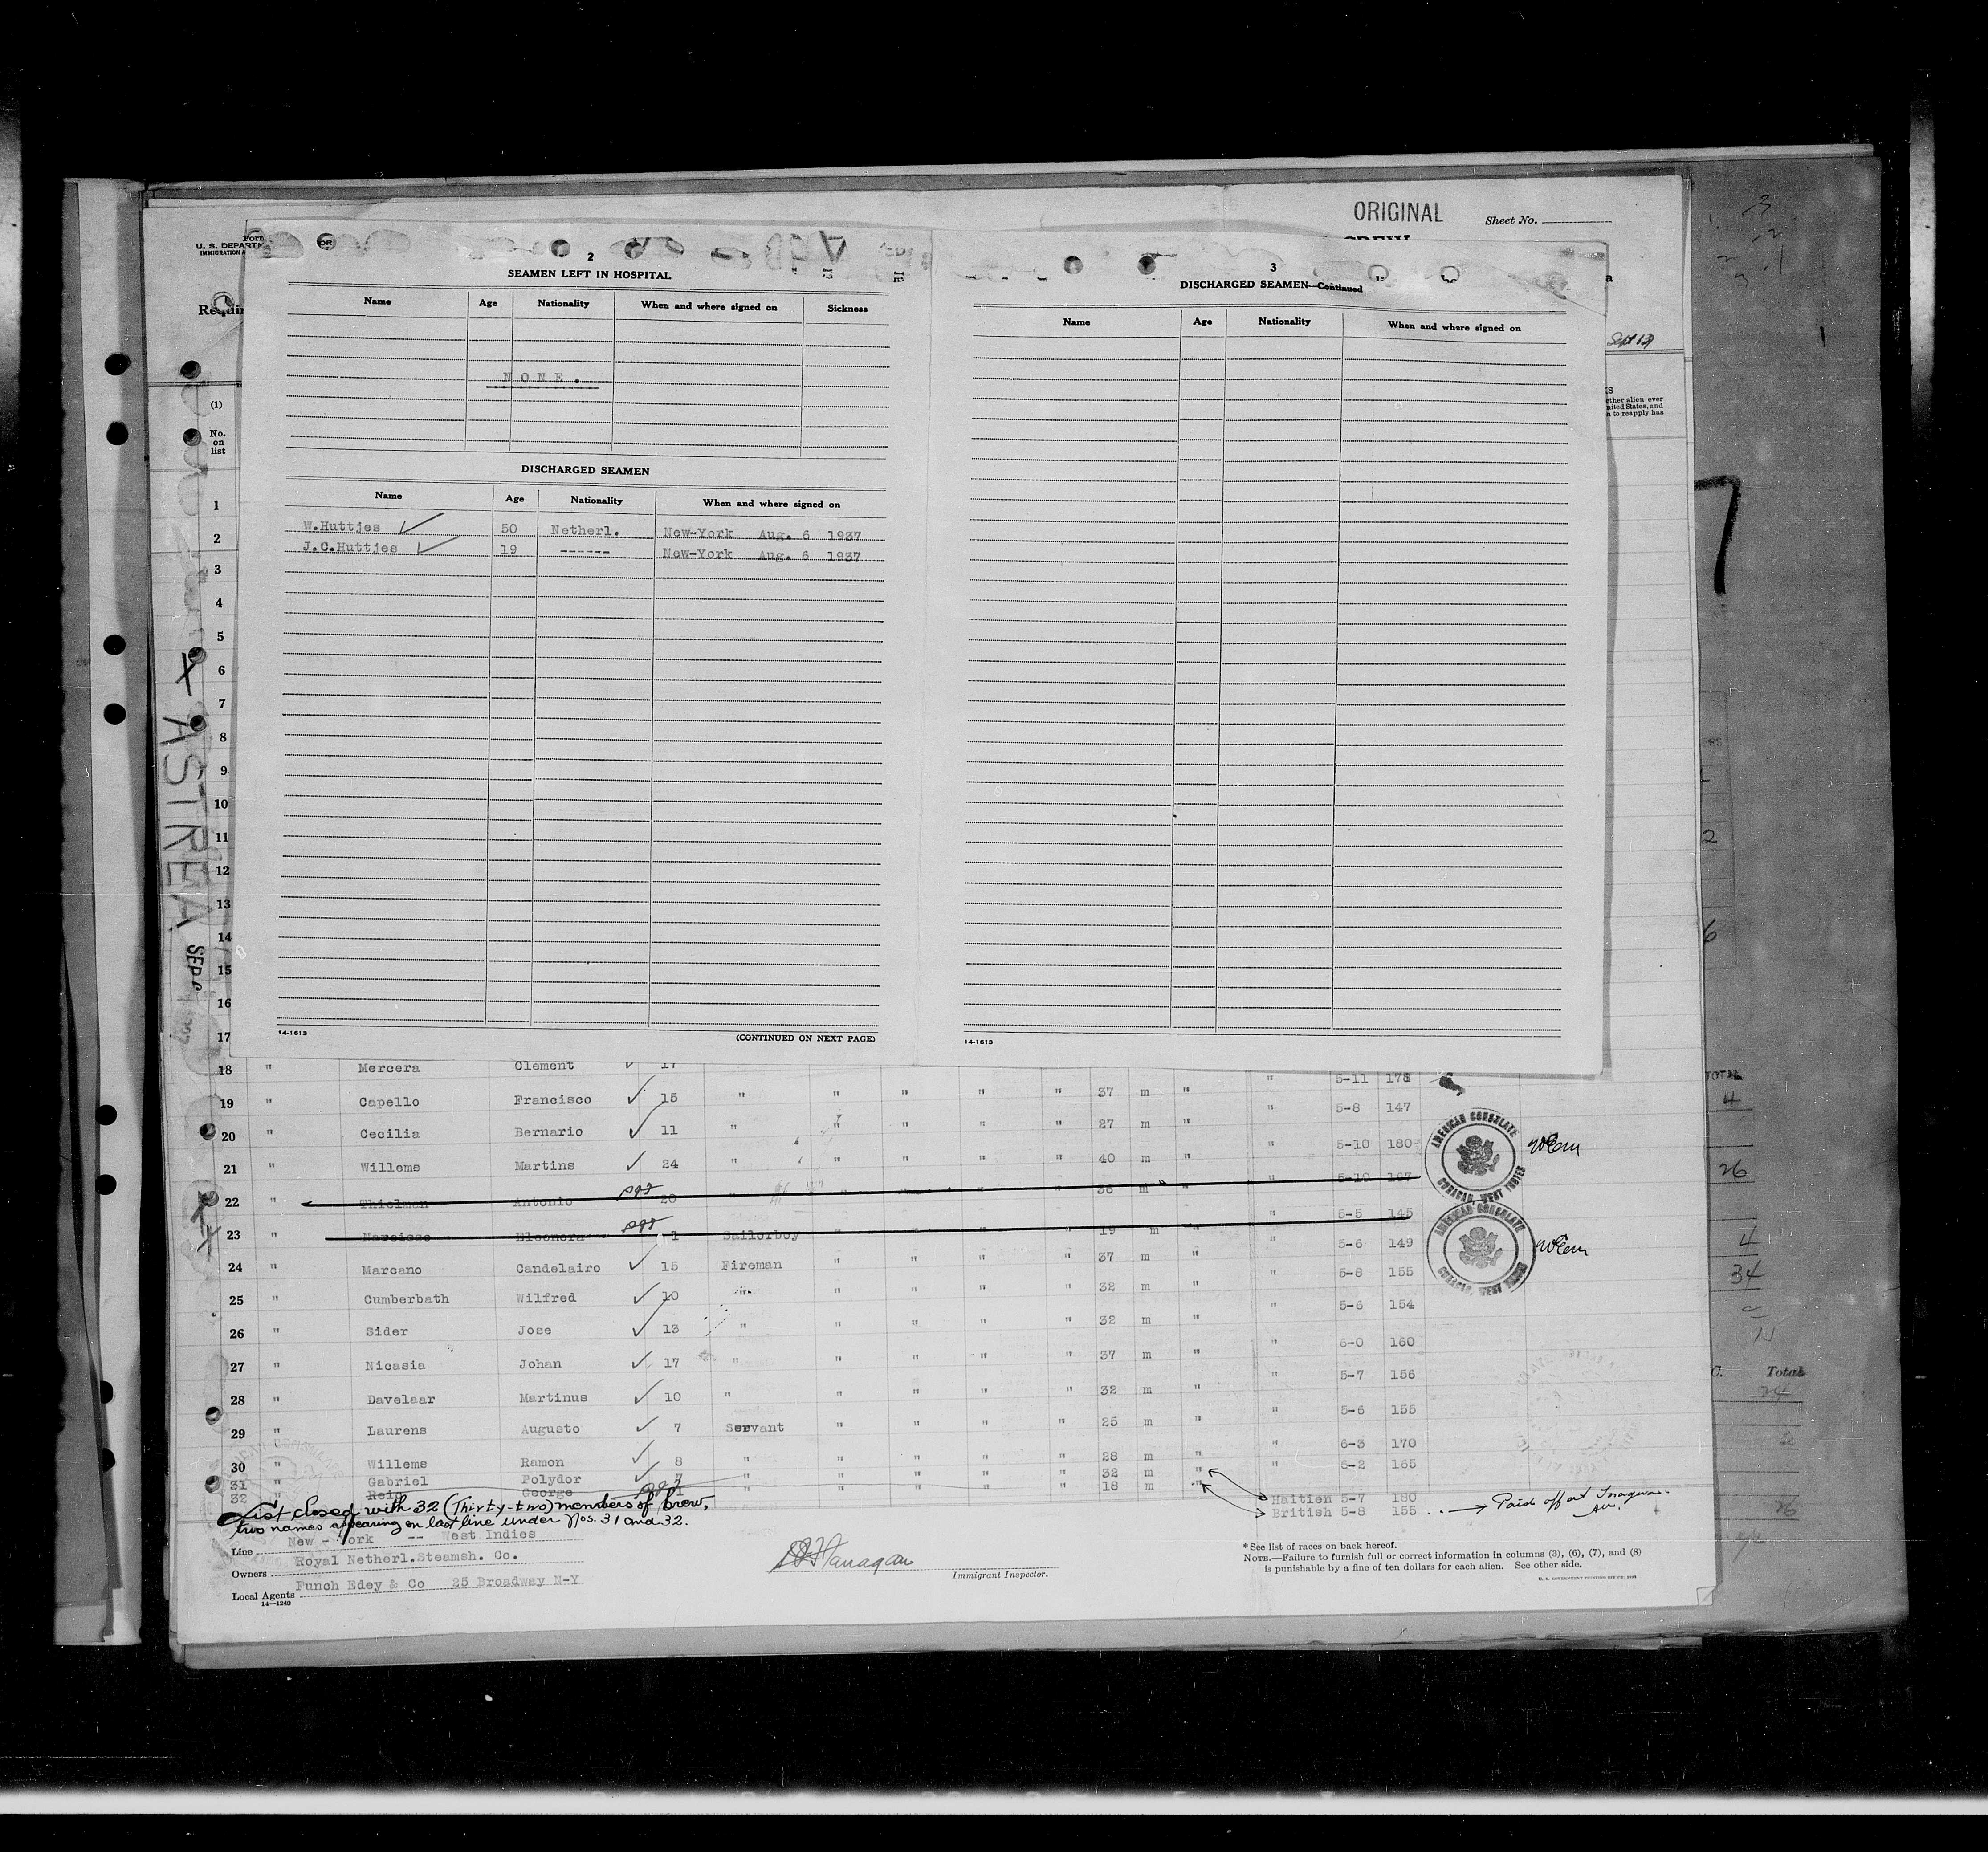 ORIGINAL
Sheet No.
U. S. DEPARTM
IMMIGRATION
2
SEAMEN LEFT IN HOSPITAL
Name Age Nationality When and where signed on Sickness
NONE.
DISCHARGED SEAMEN
Name Age Nationality When and where signed on
W.Huttjes 50 Netherl. New-York Aug. 6 1937
J.C.Huttjes 19 ------ New-York Aug. 6 1937
14-1613
(CONTINUED ON NEXT PAGE)
3
DISCHARGED SEAMEN—Continued
Name Age Nationality When and where signed on
14-1613
Sept 13
ether alien ever
nited States, and
n to reapply has
(1)
No.
on
list
1
2
3
4
5
6
7
8
9
10
11
12
13
14
15
16
17
X ASTREA
SEP
18 " Mercera Clement 17 " 5-11 178
19 " Capello Francisco 15 " " " " " 37 m " " 5-8 147
20 " Cecilia Bernario 11 " " " " " 27 m " " 5-10 180
21 " Willems Martins 24 " " " " " 40 m " " 5-10 167
22 " Thielman Antonio 20 " " " " " 36 m " " 5-5 145
23 " Narcisse Eleonora 1 Sailorboy " " " " 19 m " " 5-6 149
24 " Marcano Candelairo 15 Fireman " " " " 37 m " " 5-8 155
25 " Cumberbath Wilfred 10 " " " " " 32 m " " 5-6 154
26 " Sider Jose 13 " " " " " 32 m " " 6-0 160
27 " Nicasia Johan 17 " " " " " 37 m " " 5-7 156
28 " Davelaar Martinus 10 " " " " " 32 m " " 5-6 155
29 " Laurens Augusto 7 Servant " " " " 25 m " " 6-3 170
30 " Willems Ramon 8 " " " " " 28 m " " 6-2 165
31 " Gabriel Polydor 7 " " " " " 32 m " Haitien 5-7 180
32 " Reid George 1 " " " " " 18 m " British 5-8 155 Paid off at Inagua
AMERICAN CONSULATE
CURACAO, WEST INDIES
AMERICAN CONSULATE
CURACAO, WEST INDIES
List closed with 32 (Thirty-two) members of crew,
two names appearing on last line under Nos. 31 and 32.
Line New-York -- West Indies
Owners Royal Netherl.Steamsh. Co.
Local Agents Funch Edey & Co 25 Broadway N-Y
14—1240
Immigrant Inspector.
* See list of races on back hereof.
NOTE.—Failure to furnish full or correct information in columns (3), (6), (7), and (8)
is punishable by a fine of ten dollars for each alien. See other side.
TOTAL
4
26
4
34
C. Total